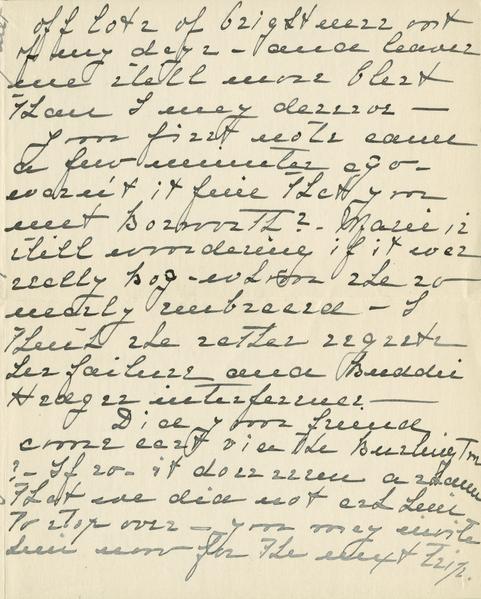 off lots of brightness out
of my days - and leaves
me still more blest
Than I may deserve -
Your first note came
a few minutes ago -
wasn't it fine That you
met Bosworth? - Marie is
still wondering if it was
really Bog - whom she so
nearly embraced - I
Think she rather regrets
her failure and Buddie
Hseger interference -
Did your friend
come east via The Burlington
? - If so - it does seem a shame
That we did not ask him
To stop over - you may invite
him now for The next Trip.